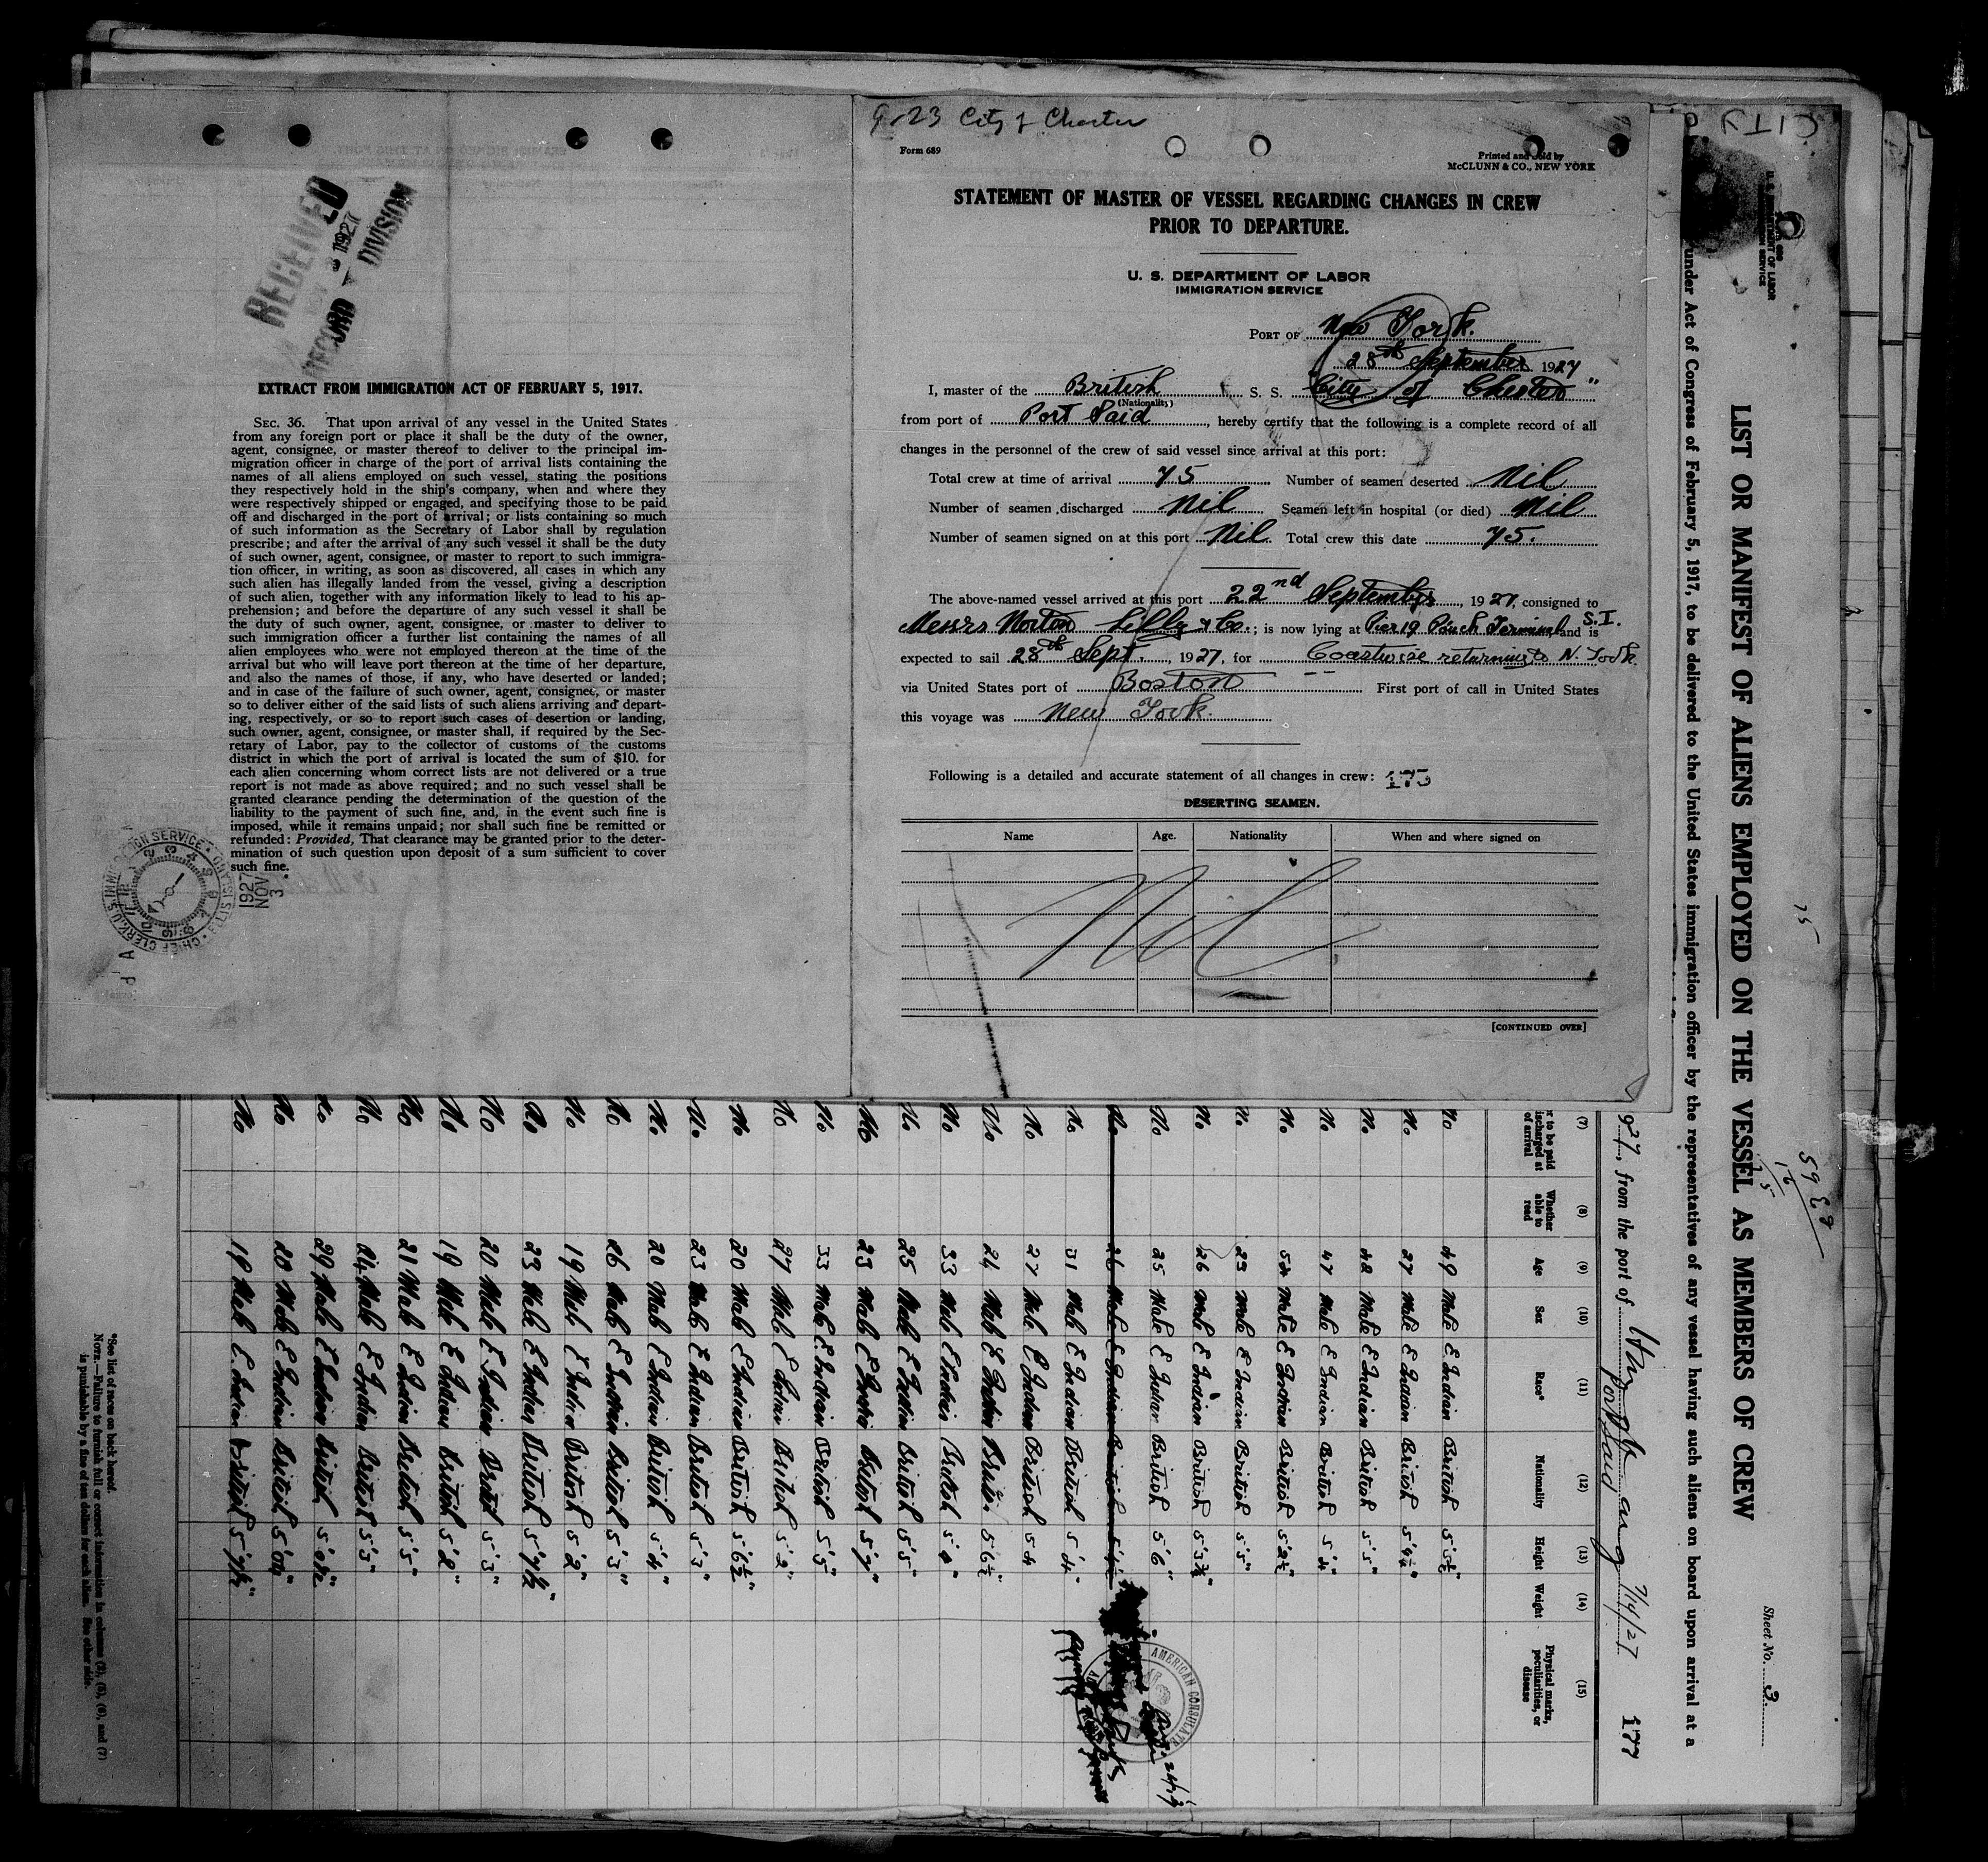 RECEIVED
1927
RECORD DIVISION
EXTRACT FROM IMMIGRATION ACT OF FEBRUARY 5, 1917.
SEC. 36. That upon arrival of any vessel in the United States
from any foreign port or place it shall be the duty of the owner,
agent, consignee, or master thereof to deliver to the principal im-
migration officer in charge of the port of arrival lists containing the
names of all aliens employed on such vessel, stating the positions
they respectively hold in the ship's company, when and where they
were respectively shipped or engaged, and specifying those to be paid
off and discharged in the port of arrival; or lists containing so much
of such information as the Secretary of Labor shall by regulation
prescribe; and after the arrival of any such vessel it shall be the duty
of such owner, agent, consignee, or master to report to such immigra-
tion officer, in writing, as soon as discovered, all cases in which any
such alien has illegally landed from the vessel, giving a description
of such alien, together with any information likely to lead to his ap-
prehension; and before the departure of any such vessel it shall be
the duty of such owner, agent, consignee, or master to deliver to
such immigration officer a further list containing the names of all
alien employees who were not employed thereon at the time of the
arrival but who will leave port thereon at the time of her departure,
and also the names of those, if any, who have deserted or landed;
and in case of the failure of such owner, agent, consignee, or master
so to deliver either of the said lists of such aliens arriving and depart-
ing, respectively, or so to report such cases of desertion or landing,
such owner, agent, consignee, or master shall, if required by the Sec-
retary of Labor, pay to the collector of customs of the customs
district in which the port of arrival is located the sum of $10. for
each alien concerning whom correct lists are not delivered or a true
report is not made as above required; and no such vessel shall be
granted clearance pending the determination of the question of the
liability to the payment of such fine, and, in the event such fine is
imposed, while it remains unpaid; nor shall such fine be remitted or
refunded: Provided, That clearance may be granted prior to the deter-
mination of such question upon deposit of a sum sufficient to cover
such fine.
1927
NOV
3
9-23 City of Chester
Form 689
Printed and Sold by
McCLUNN & CO., NEW YORK
STATEMENT OF MASTER OF VESSEL REGARDING CHANGES IN CREW
PRIOR TO DEPARTURE.
U. S. DEPARTMENT OF LABOR
IMMIGRATION SERVICE
PORT OF New York.
28th September 1927
I, master of the British S. S. "City of Chester"
(Nationality)
from port of Port Said, hereby certify that the following is a complete record of all
changes in the personnel of the crew of said vessel since arrival at this port:
Total crew at time of arrival 75 Number of seamen deserted Nil
Number of seamen discharged Nil Seamen left in hospital (or died) Nil
Number of seamen signed on at this port Nil. Total crew this date 75.
The above-named vessel arrived at this port 22nd September, 1927, consigned to
Messrs Norton Lilly & Co.; is now lying at Pier 19 Pouch Terminal S.I. and is
expected to sail 28th Sept., 1927, for Coastwise returning to N. York
via United States port of Boston First port of call in United States
this voyage was New York.
Following is a detailed and accurate statement of all changes in crew: 175
DESERTING SEAMEN.
Name Age. Nationality When and where signed on
Nil
[CONTINUED OVER]
CITY
U. S. DEPARTMENT OF LABOR
IMMIGRATION SERVICE
Sheet No. 3
LIST OR MANIFEST OF ALIENS EMPLOYED ON THE VESSEL AS MEMBERS OF CREW
under Act of Congress of February 5, 1917, to be delivered to the United States immigration officer by the representatives of any vessel having such aliens on board upon arrival at a
927, from the port of Port Said 7/14/27 177
(7) (8) (9) (10) (11) (12) (13) (14) (15)
r to be paid
ischarged at
of arrival
Whether
able to
read
Age
Sex
Race*
Nationality
Height
Weight
Physical marks,
peculiarities, or
disease
No 49 Male E Indian British 5'5½"
No 27 Male E Indian British 5'4¼"
No 48 Male E Indian British 5'5"
No 47 Male E Indian British 5'4"
No 52 Male E Indian British 5'2½"
No 23 Male E Indian British 5'5"
No 26 Male E Indian British 5'3¾"
No 25 Male E Indian British 5'6"
No 26 Male E Indian British
No 31 Male E Indian British 5'4"
No 27 Male E Indian British 5 4
No 24 Male E Indian British 5 6½"
No 33 Male E Indian British
No 25 Male E Indian British 5'5"
No 23 Male E Indian British 5'7"
No 33 Male E. Indian British 5'5"
No 27 Male E Indian British 5'2"
No 20 Male E Indian British 5'6½"
No 23 Male E Indian British 5'3"
No 20 Male E Indian British 5'4"
No 26 Male E Indian British 5'3"
No 19 Male E Indian British 5'2"
No 23 Male E Indian British 5'7½"
No 20 Male E Indian British 5'3"
No 19 Male E Indian British 5'2"
No 21 Male E Indian British 5'5"
No 24 Male E Indian British 5'3"
No 29 Male E Indian British
No 20 Male E Indian British
No 19 Male E. Indian British
AMERICAN CONSULATE
*See list of races on back hereof.
NOTE.—Failure to furnish full or correct information in columns (3), (5), (6), and (7)
is punishable by a fine of ten dollars for each alien. See other side.